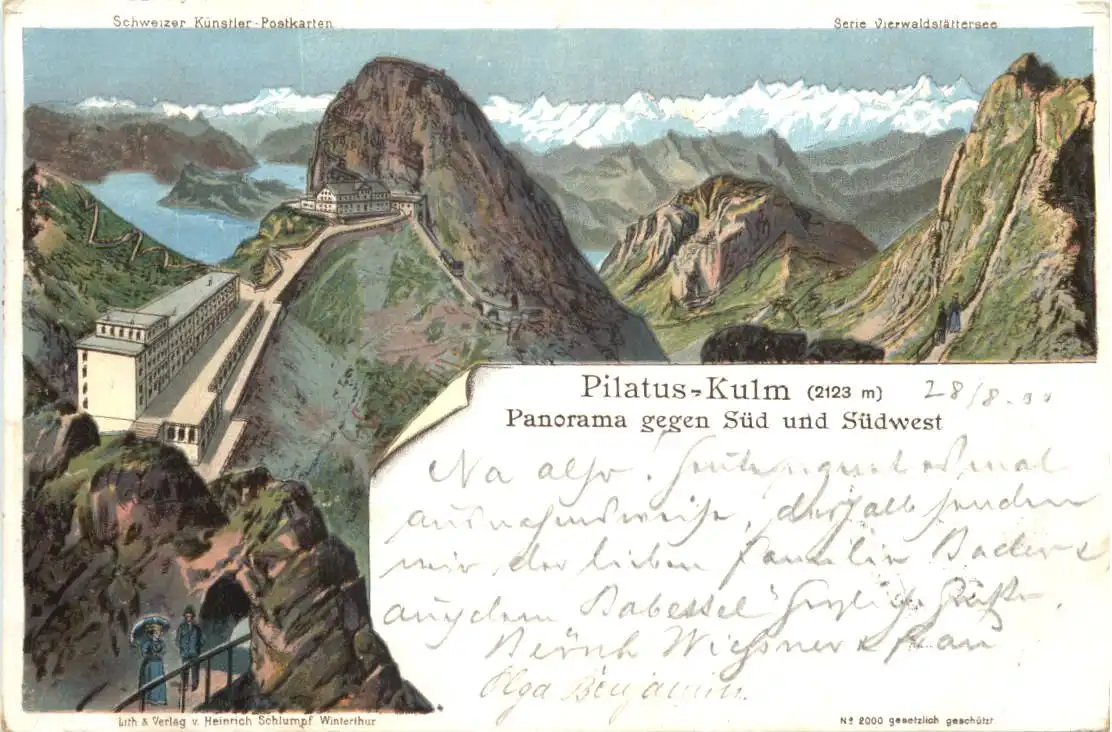 Schweizer Künstler-Postkarten
Serie Vierwaldstättersee
Pilatus-Kulm (2123 m) 28/8.
Panorama gegen Süd und Südwest
Na also! es mal
ausnahmsweise, deshalb senden
wir der lieben Familie Bader
auf dem herzliche Grüße.
Wießner & Frau
Olga Benjamin.
Lith & Verlag v. Heinrich Schlumpf Winterthur
No 2000 gesetzlich geschützt